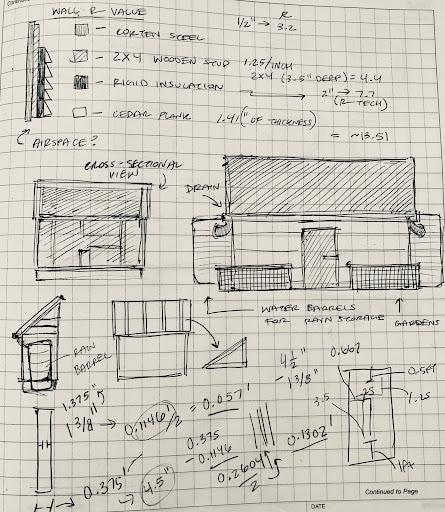 WALL R VALUE
1/2" → R 3.2
- CORTEN STEEL
- 2X4 WOODEN STUD 1.25/INCH
2X4 (3.5" DEEP) = 4.4
- RIGID INSULATION 2 → 2" → 7.7
(R TECH)
- CEDAR PLANK 1.41 (" OF THICKNESS)
= ~13.51
AIRSPACE?
CROSS-SECTIONAL
VIEW
DRAIN
WATER BARRELS
FOR RAIN STORAGE
GARDENS
RAIN
BARREL
1.375"
1 3/8" → 0.1146'/2 = 0.057'
4 1/2"
- 1 3/8"
0.667
0.375
- 0.1146
0.2604/2
0.1302'
3.5
1.25
.25
0.375' → 4.5"
Continued to Page
DATE